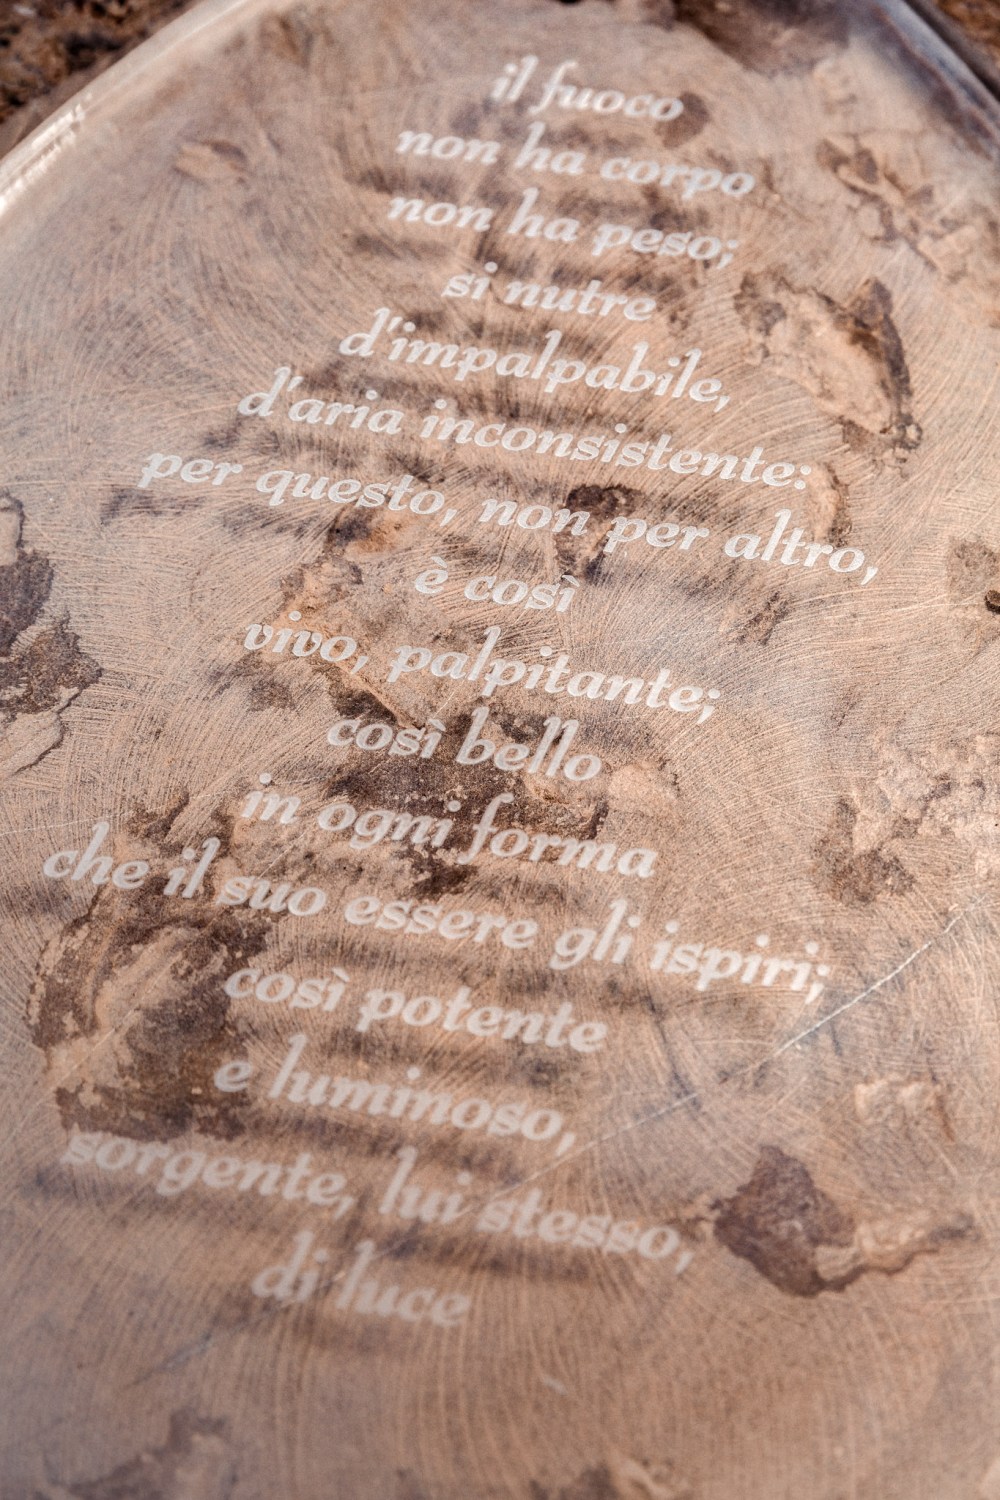 il fuoco
non ha corpo
non ha peso;
si nutre
d'impalpabile,
d'aria inconsistente:
per questo, non per altro,
è così
vivo, palpitante;
così bello
in ogni forma
che il suo essere gli ispiri;
così potente
e luminoso,
sorgente, lui stesso,
di luce